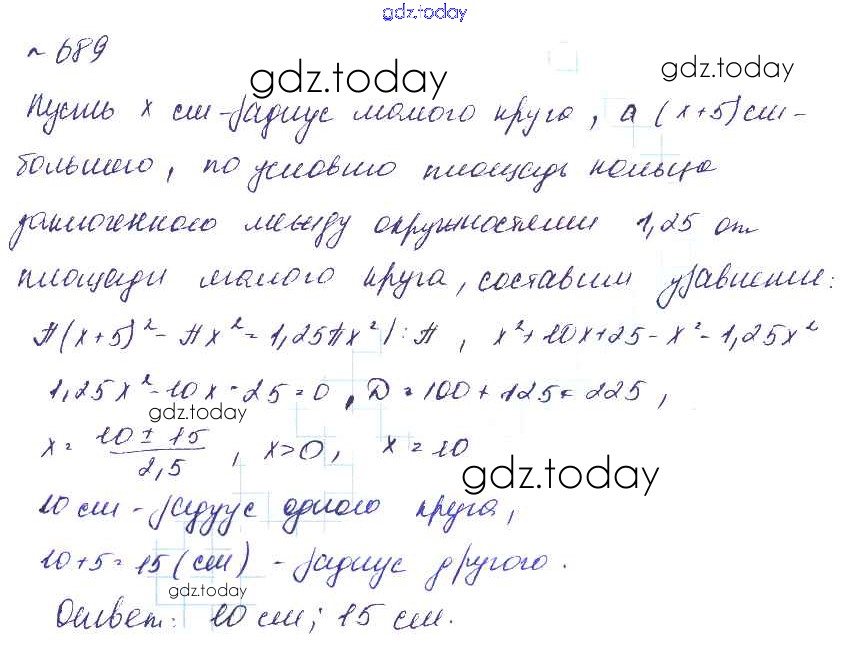 gdz.today
№ 689
gdz.today
gdz.today
Пусть x см - радиус малого круга, а (x+5) см -
большого, по условию площадь кольца
заключенного между окружностями 1,25 от
площади малого круга, составим уравнение:
π(x+5)² - πx² = 1,25πx² | :π, x² + 10x + 25 - x² - 1,25x²
1,25x² - 10x - 25 = 0, D = 100 + 125 = 225,
gdz.today
x = (10 ± 15)/2,5, x > 0, x = 10
gdz.today
10 см - радиус одного круга,
10 + 5 = 15 (см) - радиус другого.
gdz.today
Ответ: 10 см; 15 см.